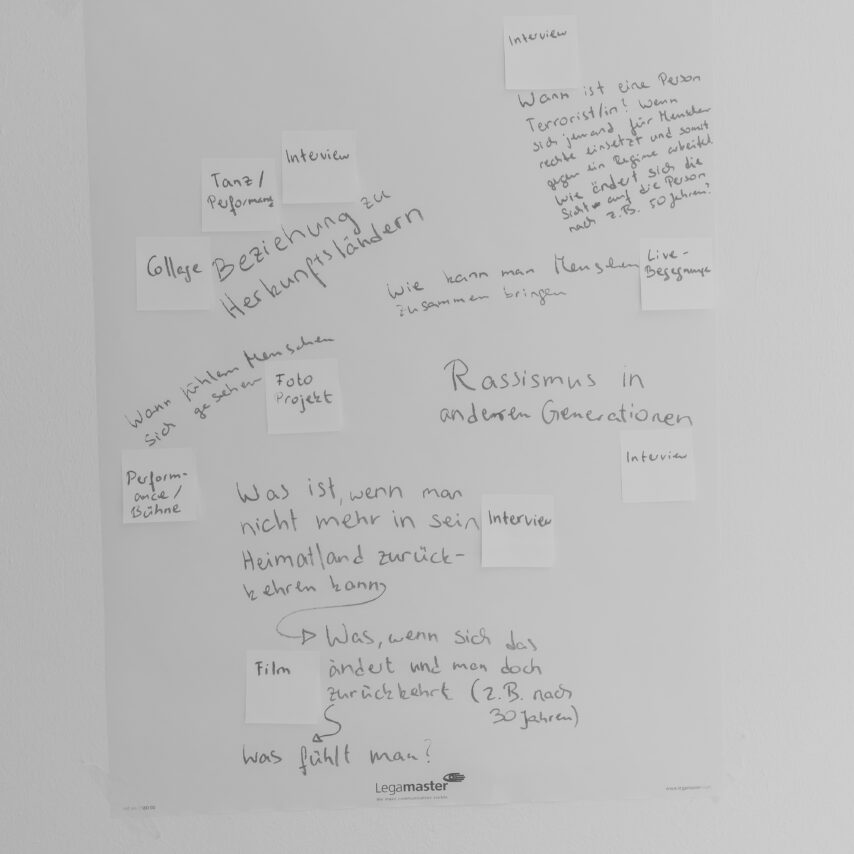 Interview
Wann ist eine Person
Terrorist/in? Wenn
sich jemand für Menschen
rechte einsetzt und somit
gegen ein Regime arbeitet
Wie ändert sich die
Sicht auf die Person
nach z.B. 50 Jahren?
Interview
Tanz/
Performanz
Collage
Beziehung zu
Herkunftsländern
Wie kann man Menschen
zusammen bringen
Live-
Begegnung
Wann fühlen Menschen
sich gesehen
Foto
Projekt
Rassismus in
anderen Generationen
Interview
Perform-
ance/
Bühne
Was ist, wenn man
nicht mehr in sein
Heimatland zurück-
kehren kann
Interview
Was, wenn sich das
ändert und man doch
zurückkehrt (z.B. nach
30 Jahren)
Film
Was fühlt man?
Legamaster